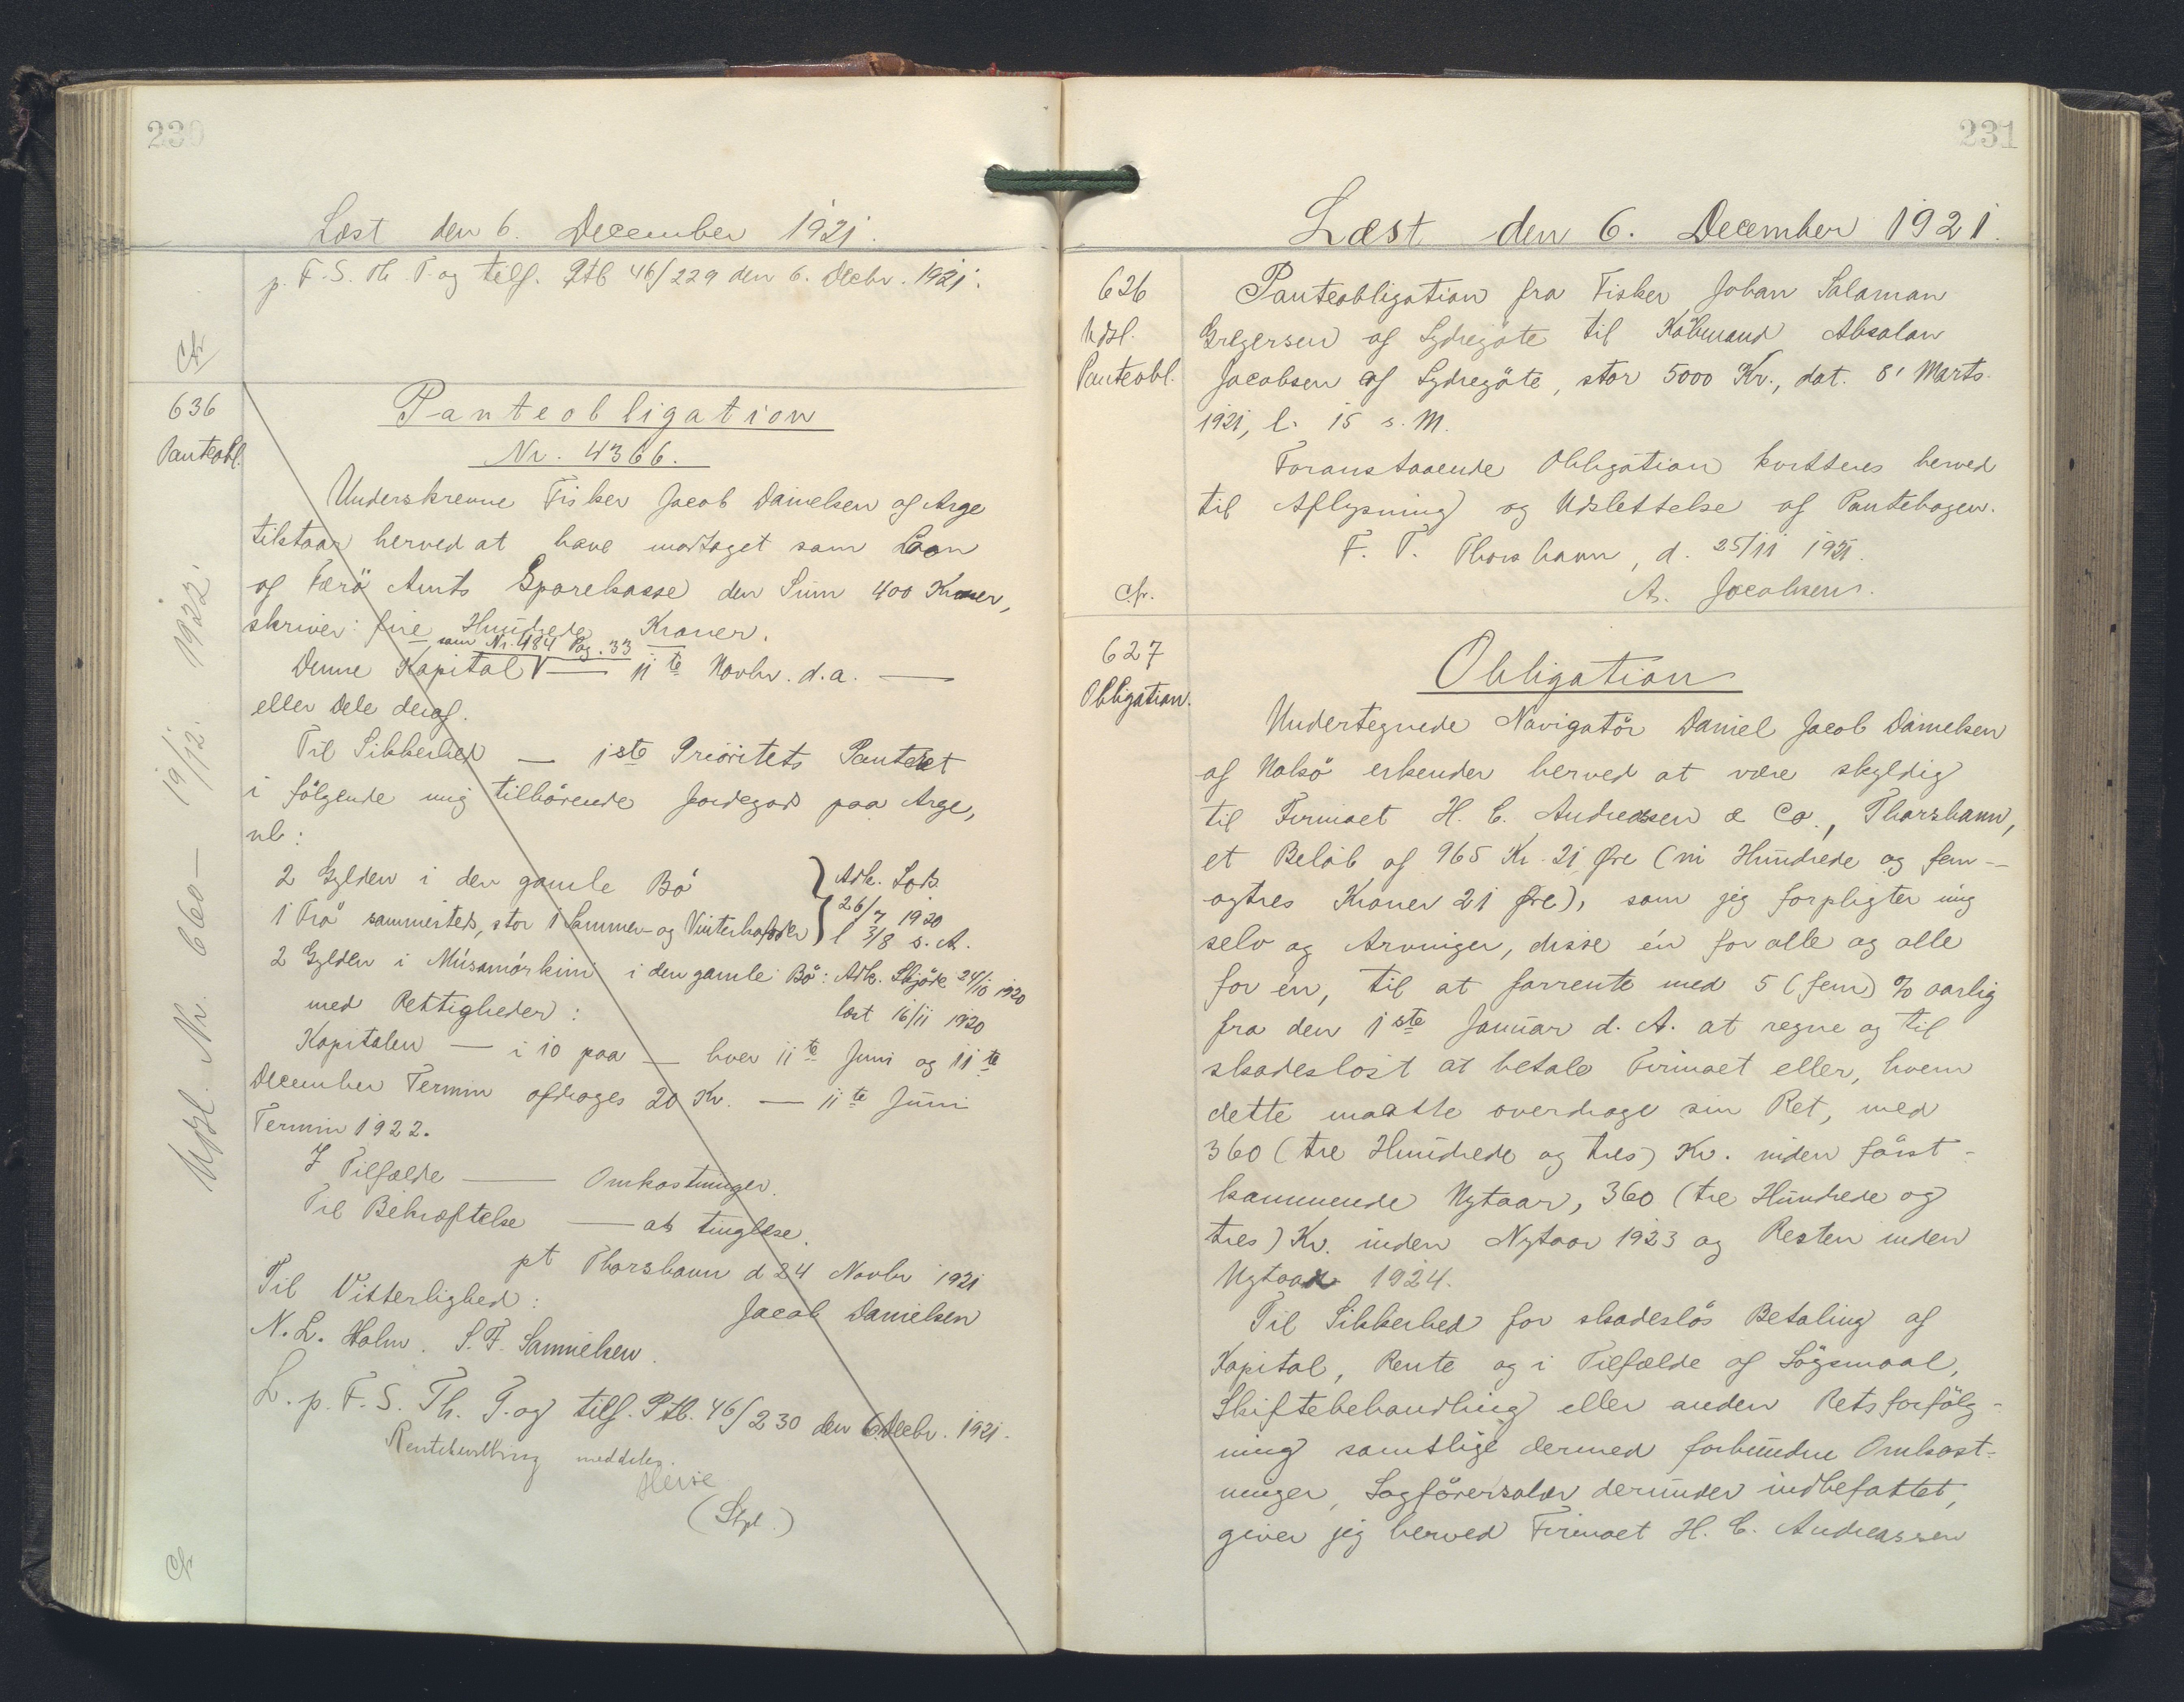 230
Læst den 6. December 1921.
p. F. S. Th. T. og tilf. Ptb 46/229 den 6. Decbr. 1921.
Cfr
636
Panteobl.
Panteobligation
Nr. 4366.
Underskrevne Fisker Jacob Danielsen af Arge
tilstaar herved at have modtaget som Laan
af Færö Amts Sparekasse den Sum 400 Kroner,
skriver: fire Hundrede Kroner.
som Nr. 484 Pag. 33
Denne Kapital V — 11te Novbr. d.a. —
eller Dele deraf.
Til Sikkerhed — 1ste Prioritets Panteret
i fölgende mig tilhörende Jordegods paa Arge,
nl:
2 Gylden i den gamle Bö
1 Trö sammesteds, stor 1 Sommer- og Vinterhofoder
Adk. Lods.
26/7 1920
l 3/8 s. A.
2 Gylden i Músamórkini i den gamle Bö: Adk. Skjöde 24/10 1920
med Rettigheder:
læst 16/11 1920
Kapitalen — i 10 paa — hver 11te Juni og 11te
December Termin afdrages 20 Kr. — 11te Juni
Termin 1922.
I Tilfælde — Omkostninger.
Til Bekræftelse — at tinglæse.
pt Thorshavn d 24 Novbr 1921
Til Vitterlighed:
Jacob Danielsen
N. L. Holm. S. F. Samuelsen.
L. p. F. S. Th. T. og tilf. Ptb. 46/230 den 6. Decbr. 1921.
meddeles.
(Stpl.)
Cfr
Udsl. Nr. 660 — 19/12. 1922.
231
Læst den 6. December 1921.
626
Udsl.
Panteobl.
Panteobligation fra Fisker Johan Salaman
Gregersen af Sydregöte til Köbmand Absalon
Jacobsen af Sydregöte, stor 5000 Kr., dat. 8' Marts
1921, l. 15 s. M.
Foranstaaende Obligation kvitteres herved
til Aflysning og Udslettelse af Pantebogen.
F. T. Thorshavn, d. 25/11 1921.
A. Jacobsen.
cfr.
627
Obligation.
Obligation
Undertegnede Navigatör Daniel Jacob Danielsen
af Nolsö erkender herved at være skyldig
til Firmaet H. C. Andreasen & Co., Thorshavn,
et Belöb af 965 Kr. 21 Øre (ni Hundrede og fem-
ogtres Kroner 21 Øre), som jeg forpligter mig
selv og Arvinger, disse én for alle og alle
for én, til at forrente med 5 (fem) % aarlig
fra den 1ste Januar d. A. at regne og til
skadeslöst at betale Firmaet eller, hvem
dette maatte overdrage sin Ret, med
360 (tre Hundrede og tres) Kr. inden först-
kommende Nytaar, 360 (tre Hundrede og
tres) Kr. inden Nytaar 1923 og Resten inden
Nytaar 1924.
Til Sikkerhed for skadeslös Betaling af
Kapital, Rente og i Tilfælde af Sögsmaal,
Skiftebehandling eller anden Retsforfölg-
ning samtlige dermed forbundne Omkost-
ninger, Sagförersalær derunder indbefattet,
giver jeg herved Firmaet H. C. Andreassen